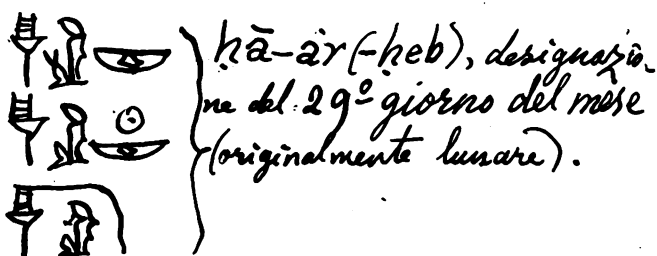 ḥā-ȧr (-ḥeb), designazio-
ne del 29º giorno del mese
(originalmente lunare).